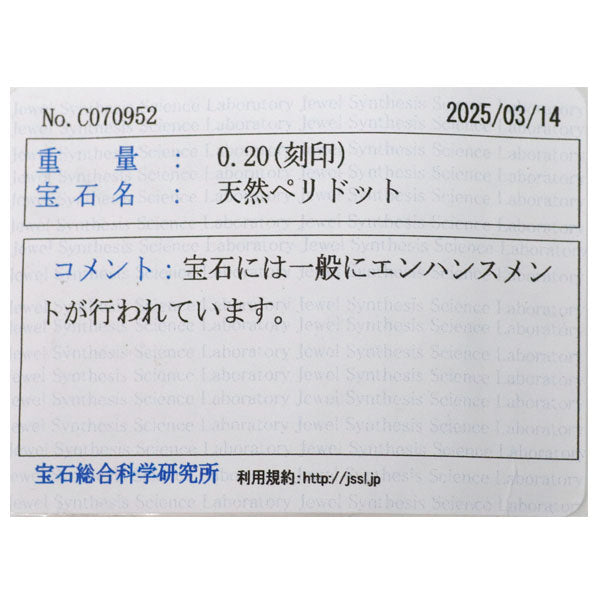 No. C070952 2025/03/14
重量 : 0.20(刻印)
宝石名 : 天然ペリドット
コメント : 宝石には一般にエンハンスメン
トが行われています。
宝石総合科学研究所 利用規約:http://jssl.jp
Jewel Synthesis Science Laboratory Jewel Synthesis Science Laboratory